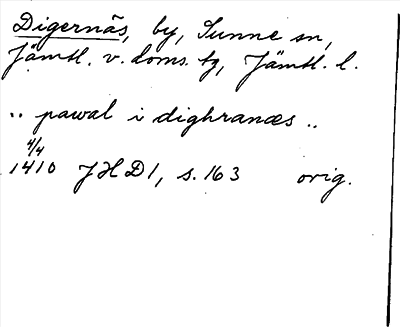 Digernäs, by, Sunne sn,
Jämtl. v. doms. tg, Jämtl. l.
.. pawal i dighranæs ..
4/4
1410 JHD 1, s. 163 orig.